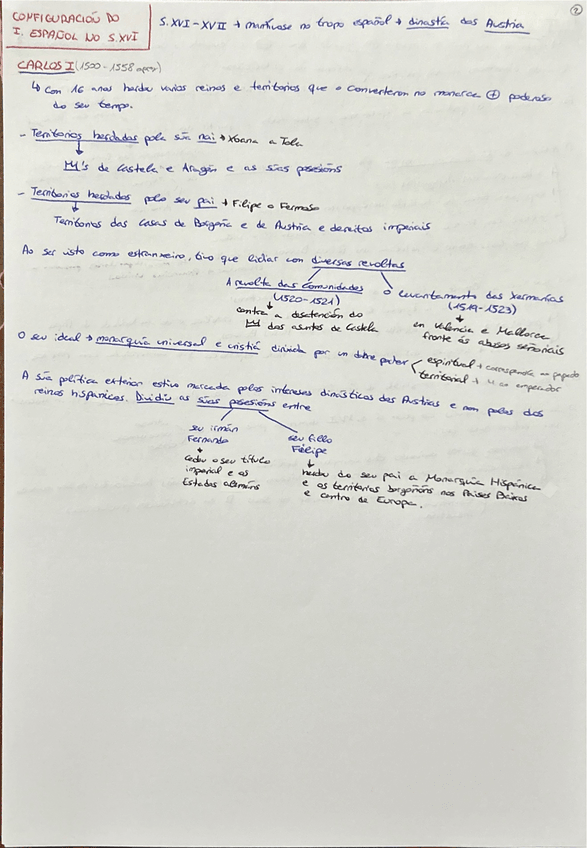 2
CONFIGURACIÓN DO
I. ESPAÑOL NO S.XVI
S.XVI-XVII → mantívose no trono español → dinastía dos Austria
CARLOS I (1500-1558 aprox)
↳ Con 16 anos herdou varios reinos e territorios que o converteron no monarca ⊕ poderoso
do seu tempo.
- Territorios herdados pola súa nai → Xoana a Tola
↓
M's de Castela e Aragón e as súas posesións
- Territorios herdados polo seu pai → Filipe o Fermoso
↓
Territorios das casas de Borgoña e de Austria e dereitos imperiais
Ao ser visto como estranxeiro, tivo que lidiar con diversas revoltas
A revolta das Comunidades
(1520-1521)
↓
contra a desatención do
M dos asuntos de Castela
O levantamento das Xermanías
(1519-1523)
↓
en Valencia e Mallorca
fronte ás abusos señoriais
O seu ideal → monarquía universal e cristiá dirixida por un dobre poder
espiritual → correspondía ao papado
territorial → " ao emperador
A súa política exterior estivo marcada polos intereses dinásticos dos Austrias e non polos dos
reinos hispánicos. Dividiu as súas posesións entre
seu irmán
Fernando
↓
cedeu o seu título
imperial e os
Estados alemáns
seu fillo
Felipe
↓
herdou do seu pai a Monarquía Hispánica
e os territorios borgoñóns nos Países Baixos
e centro de Europa.